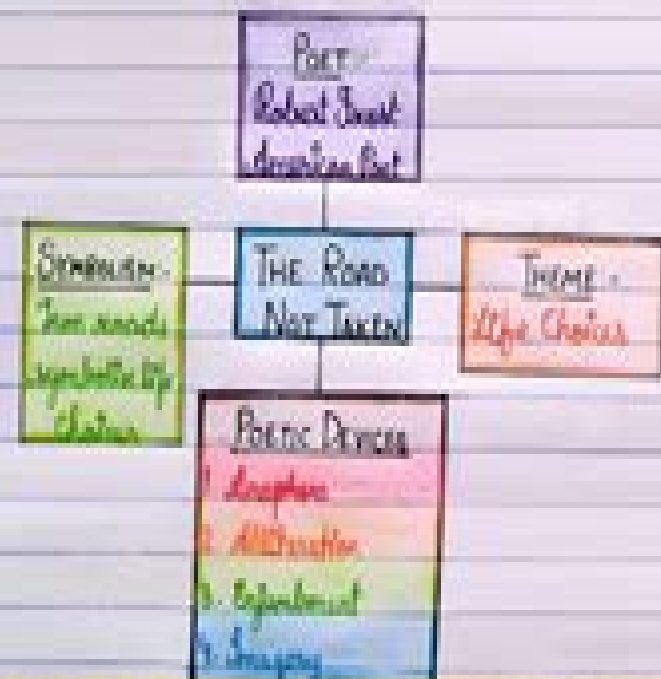 POET
Robert Frost
American Poet
SYMBOLISM-
Two roads
symbolize life
choices
THE ROAD
NOT TAKEN
THEME-
Life Choices
POETIC DEVICES
1. Anaphora
2. Alliteration
3. Enjambment
4. Imagery